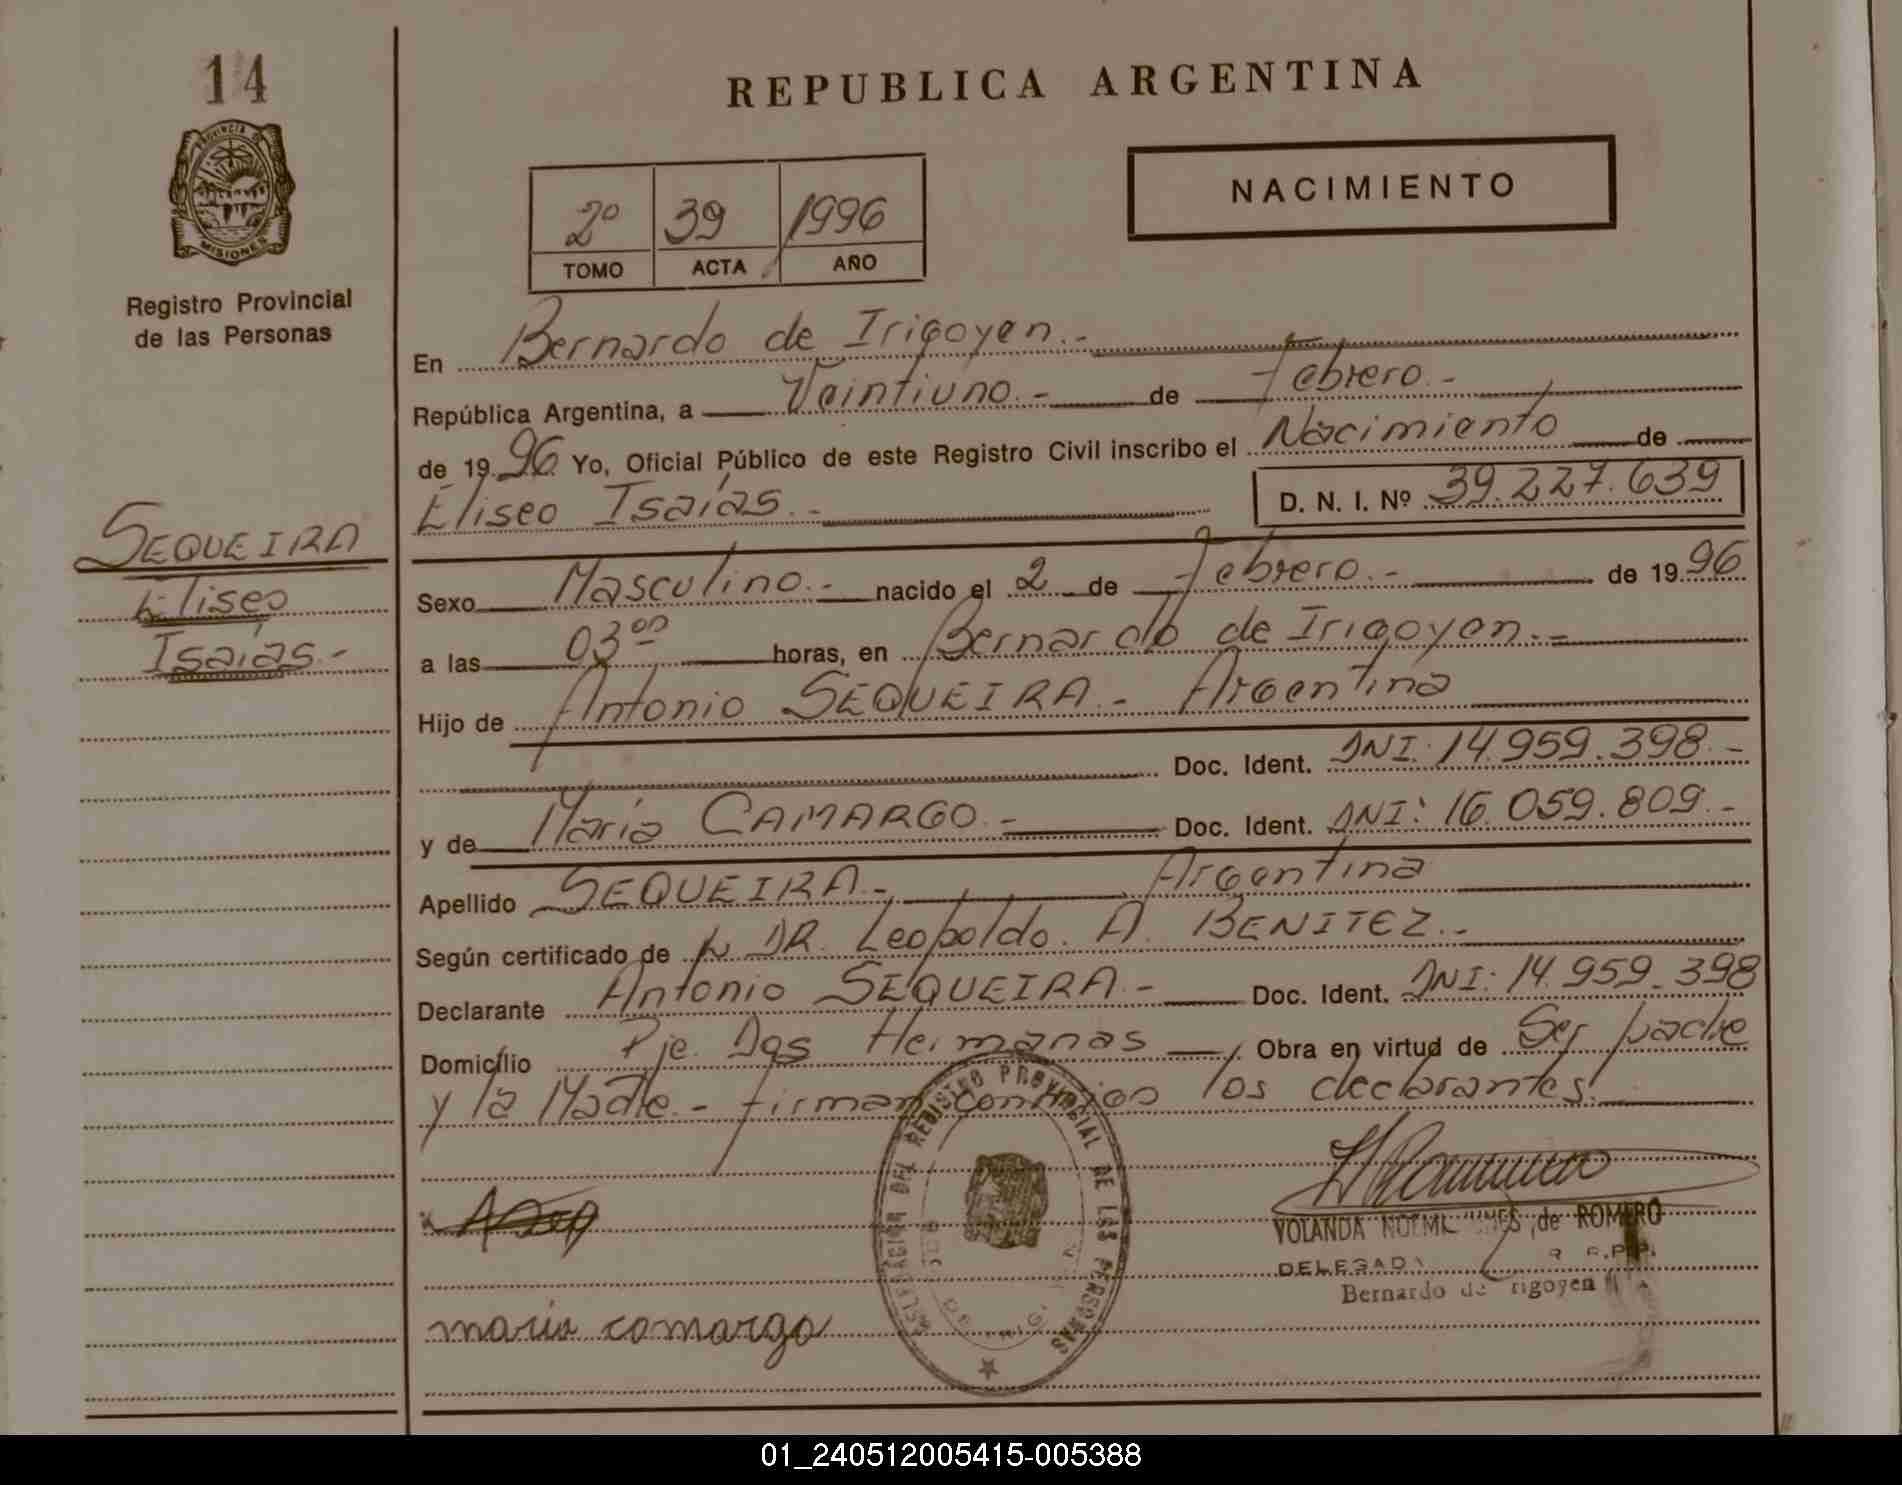 14
REPUBLICA ARGENTINA
PROVINCIA D
MISIONES
Registro Provincial
de las Personas
NACIMIENTO
2º 39 1996
TOMO ACTA AÑO
En Bernardo de Irigoyen.-
República Argentina, a Veintiuno.- de Febrero.-
de 1996 Yo, Oficial Público de este Registro Civil inscribo el Nacimiento de
Eliseo Isaías.- D. N. I. Nº 39.227.639
SEQUEIRA
Eliseo
Isaías.-
Sexo Masculino.- nacido el 2 de Febrero.- de 1996
a las 03ºº horas, en Bernardo de Irigoyen.-
Hijo de Antonio SEQUEIRA.- Argentina
Doc. Ident. DNI: 14.959.398.-
y de María CAMARGO.- Doc. Ident. DNI: 16.059.809.-
Apellido SEQUEIRA.- Argentina
Según certificado de DR. Leopoldo. A. BENITEZ.-
Declarante Antonio SEQUEIRA.- Doc. Ident. DNI: 14.959.398
Domicilio Pje. Dos Hermanas Obra en virtud de Ser padre
y la Madre.- firman conmigo los declarantes.
DELEGACION DEL REGISTRO PROVINCIAL DE LAS PERSONAS
YOLANDA NOEMI de ROMERO
DELEGADA R.P.P.
Bernardo de Irigoyen
maria comargo
01_240512005415-005388